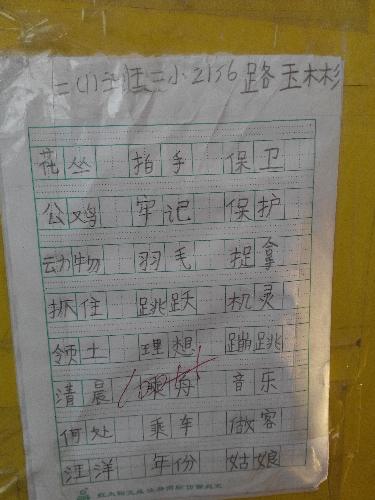 花丛 拍手 保卫
公鸡 牢记 保护
动物 羽毛 捉拿
抓住 跳跃 机灵
领土 理想 蹦跳
清晨 音乐
何处 乘车 做客
汪洋 年份 姑娘